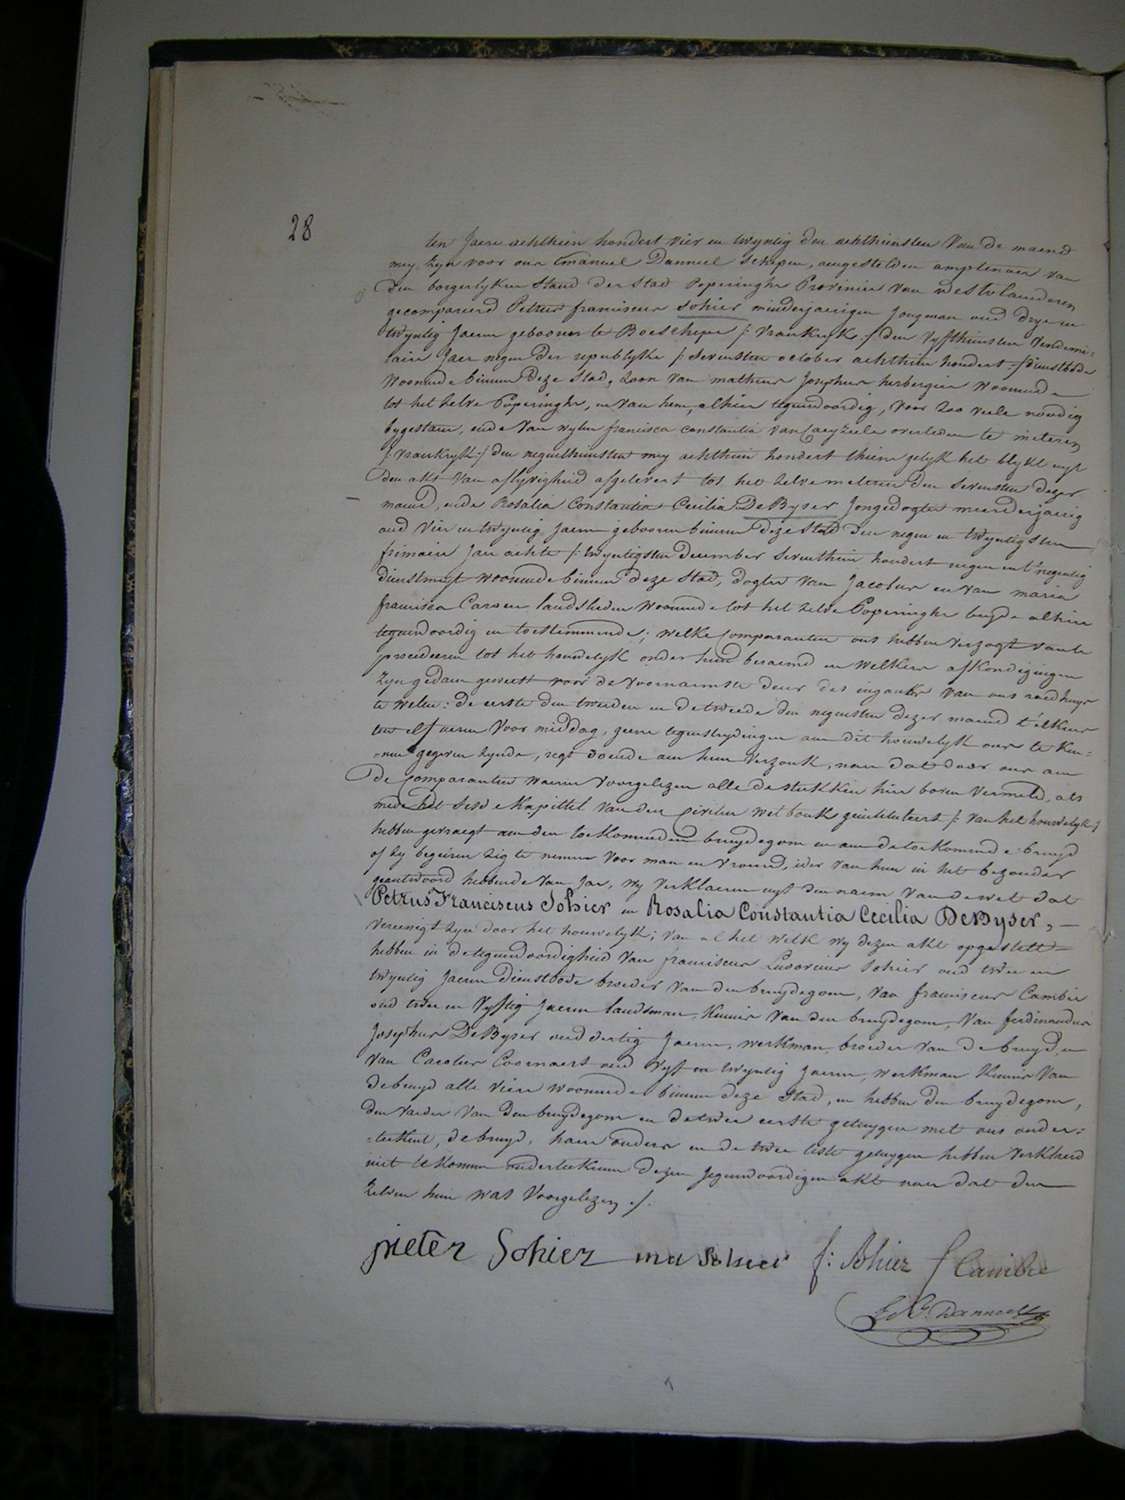 28
ten Jaere achthien hondert vier en twyntig den achthiensten van de maend
mey, zyn voor ons Emanuel Danneel Schepen, aengestelden amptenaer van
den borgerlyken Stand der Stad Poperinghe Provincie van Westvlaenderen
gecompareerd Petrus franciscus Sohier minderjaerigen Jongman oud drye en
twyntig Jaeren gebooren te Boeschepe /: vrankryk :/ den vyfthiensten Vendemi-
laire Jaer negen der republyke /: sevensten october achthien hondert :/ dienstbode
woonende binnen deze Stad, zoon van matheus Josephus herbergier woonende
tot het zelve Poperinghe, en van hem, alhier tegenwoordig, voor zoo veele noodig
bygestaen, ende van wylen francisca constantia van Caeyzeele overleden te meteren
/: vrankryk :/ den negenthiensten mey achthien hondert thien gelyk het blykt uyt
den akt van aflyvigheid afgelevert tot het zelve meteren den sevensten dezer
maend, ende Rosalia Constantia Cecilia DeByser Jongedogter meerderjaerig
oud vier en twyntig Jaeren gebooren binnen deze Stad den negen en twyntigsten
frimaire Jaer achte /: twyntigsten december seventhien hondert negen en t'negentig
dienstmeyt woonende binnen deze Stad, dogter van Jacobus en van maria
francisca Caroen landslieden woonende tot het zelve Poperinghe beyde alhier
tegenwoordig en toestemmende; welke comparanten ons hebben verzogt van te
procederen tot het houwelyk onder hun beraemd en welkers afkondigingen
zyn gedaen geweest voor de voornaemste deur des ingangs van ons raedhuys
te weten: de eerste den tweeden en de tweede den negensten dezer maend t'elkens
ten elf ueren voor middag, geene tegenstrydingen aen dit houwelyk ons te ken-
-nen gegeven zynde, regt doende aen hun verzoek, naer dat door ons aen
de comparanten waeren voorgelezen alle de stukken hier boven vermeld, als
mede het sesde kapittel van den civilen wetboek geintituleert /: van het houwelyk :/
hebben gevraegt aen den toekomenden bruydegom en aen de toekomende bruyd
of zy begeiren zig te nemen voor man en vrouw, ider van hun in het bezonder
geantwoord hebbende van Jae, wy verklaeren uyt den naem van de wet dat
Petrus Franciscus Sohier en Rosalia Constantia Cecilia DeByser, —
vereenigt zyn door het houwelyk; van al het welk wy dezen akt opgestelt
hebben in de tegenwoordigheid van franciscus Sohier oud twee en
twyntig Jaeren dienstbode broeder van den bruydegom, van franciscus Cambie
oud twee en vyftig Jaeren landsman, kennis van den bruydegom, van ferdinandus
Josephus DeByser oud dertig Jaeren, werkman, broeder van de bruyd, en
van Carolus Coornaert oud vyf en twyntig Jaeren, werkman kennis van
de bruyd alle viere woonende binnen deze Stad, en hebben den bruydegom,
den vaeder van den bruydegom en de twee eerste getuygen met ons onder-
-teekent, de bruyd, haere ouders en de twee leste getuygen hebben verklaerd
niet te konnen onderteekenen dezen Jegenwoordigen akt naer dat den
zelven hun was voorgelezen ./.
pieter Sohier ma Sohier f: Sohier f Cambie
Danneel